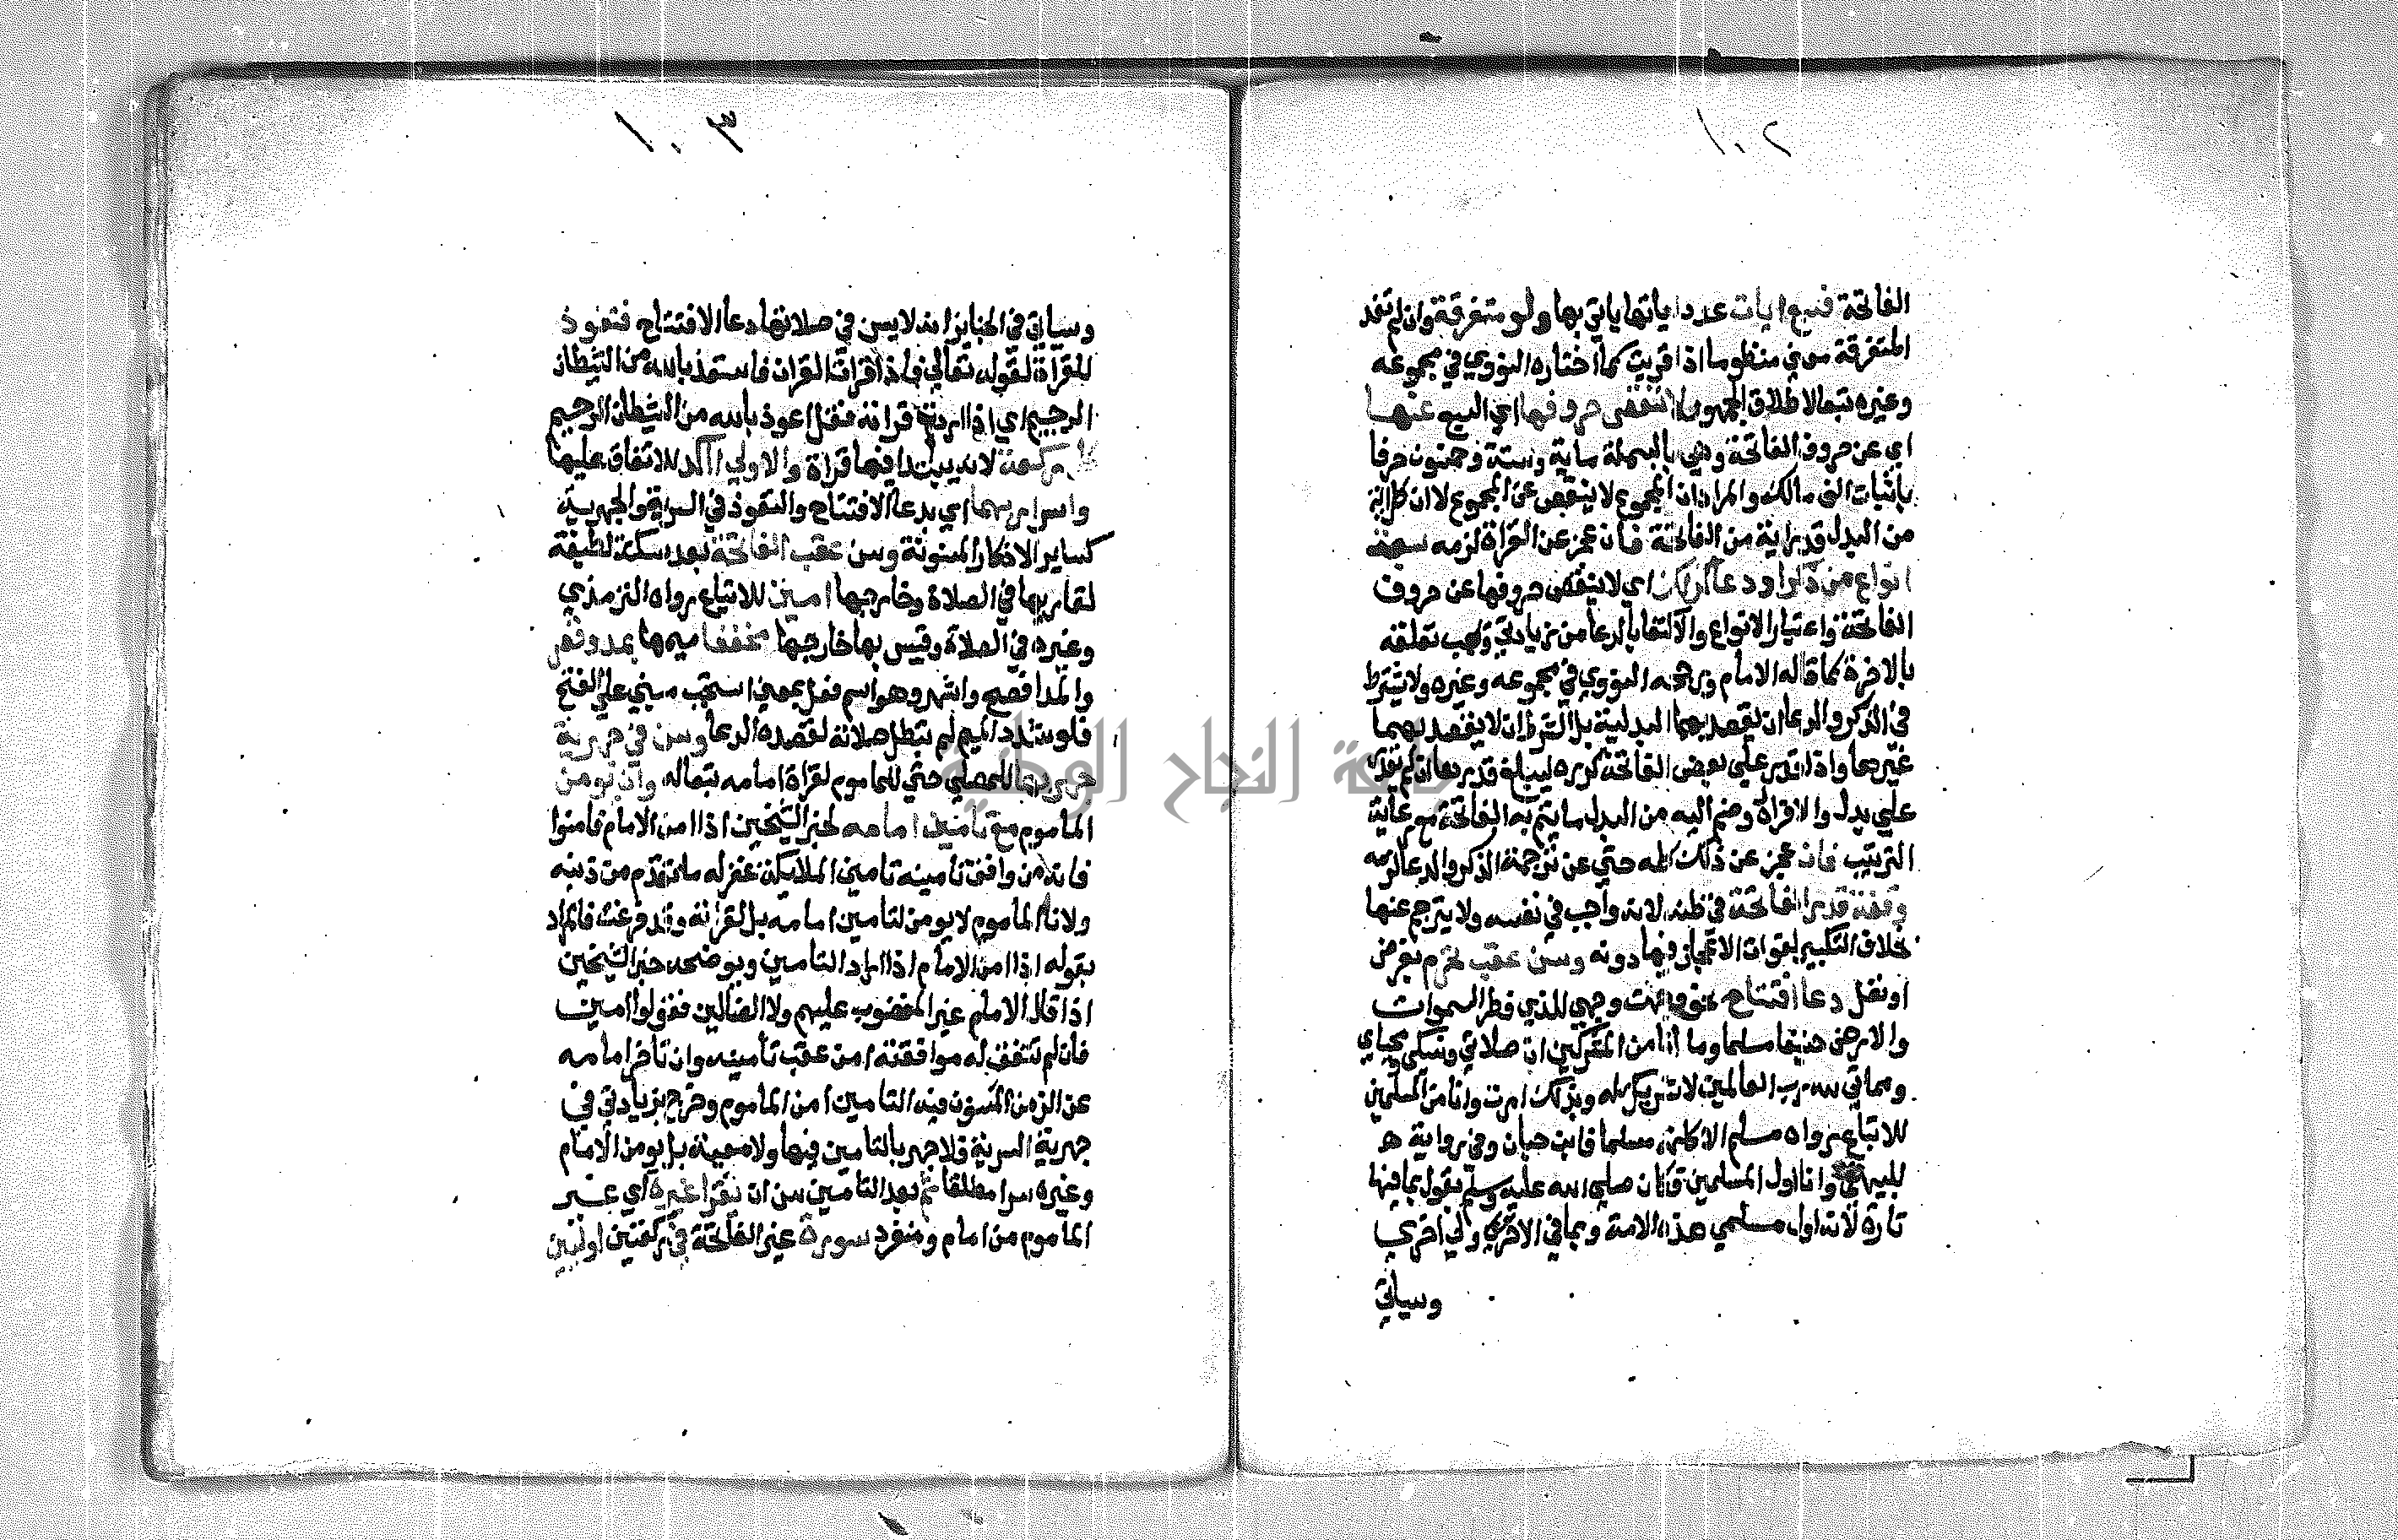 ١٠٢
الفاتحة فسبع ايات عدد اياتها ياتي بها ولو متفرقة وان لم تفد
المتفرقة معني منظوما اذا قريت كما اختاره النووي في مجموعه
وغيره تبعا لاطلاق الجمهور لا تنقص حروفها اي السبع عنها
اي عن حروف الفاتحة وهي بالبسملة ماية وستة وخمسون حرفا
باثبات الف مالك والمراد ان المجموع لا ينقص عن المجموع لا ان كل اية
من البدل قدر اية من الفاتحة فان عجز عن القراة لزمه سبعة
انواع من ذكر او دعا كذلك اي لا ينقص حروفها عن حروف
الفاتحة واعتبار الانواع والاكتفا بالدعا من زيادتي ويجب تعلقه
بالاخرة كما قاله الامام ورجحه النووي في مجموعه وغيره ولا يشترط
في الذكر والدعا ان يقصد بهما البدلية بل الشرط ان لا يقصد بهما
غيرها واذا قدر علي بعض الفاتحة كرره ليبلغ قدرها ان لم يقدر
علي بدل والا قراه وضم اليه من البدل ما يتم به الفاتحة مع رعاية
الترتيب فان عجز عن ذلك كله حتي عن ترجمة الذكر والدعا لزمه
وقفة قدر الفاتحة في ظنه لانه واجب في نفسه ولا يترجم عنها
بخلاف التكبير لفوات الاعجاز فيها دونه وسن عقب تحرم بفرض
او نفل دعا افتتاح نحو وجهت وجهي للذي فطر السموات
والارض حنيفا مسلما وما انا من المشركين ان صلاتي ونسكي ومحياي
ومماتي لله رب العالمين لا شريك له وبذلك امرت وانا من المسلمين
للاتباع رواه مسلم الا كلمة مسلما فابن حبان وفي رواية
للبيهقي وانا اول المسلمين وكان صلي الله عليه وسلم يقول بما فيها
تارة لانه اول مسلمي هذه الامة وبما في الاخري اخري
وسياتي
١٠٣
وسياتي في الجنايز انه لا يسن في صلاتها دعا الافتتاح فتعوذ
للقراة لقوله تعالي فاذا قرات القران فاستعذ بالله من الشيطان
الرجيم اي اذا اردت قراته فقل اعوذ بالله من الشيطان الرجيم
كل ركعة لانه يبتدا فيها قراة والاولي اكد للاتفاق عليها
واسرار بهما اي بدعا الافتتاح والتعوذ في السرية والجهرية
كساير الاذكار المسنونة وسن عقب الفاتحة بعد سكتة لطيفة
لقاريها في الصلاة وخارجها امين للاتباع رواه الترمذي
وغيره في الصلاة وقيس بها خارجها مخففا ميمها بمد وقصر
والمد افصح واشهر وهو اسم فعل بمعني استجب مبني علي الفتح
فلو شدد الميم لم تبطل صلاته لقصده الدعا وسن في جهرية
جهر بها للمصلي حتي للماموم لقراة امامه تبعا له وان يومن
الماموم مع تامين امامه لخبر الشيخين اذا امن الامام فامنوا
فانه من وافق تامينه تامين الملايكة غفر له ما تقدم من ذنبه
ولان الماموم لا يومن لتامين امامه بل لقراته وقد فرغت فالمراد
بقوله اذا امن الامام اذا اراد التامين ويوضحه خبر الشيخين
اذا قال الامام غير المغضوب عليهم ولا الضالين فقولوا امين
فان لم تتفق له موافقته امن عقب تامينه وان تاخر امامه
عن الزمن المسنون فيه التامين امن الماموم وخرج بزيادتي في
جهرية السرية فلا جهر بالتامين فيها ولا معية بل يومن الامام
وغيره سرا مطلقا ثم بعد التامين سن ان يقرا غيره اي غير
الماموم من امام ومنفرد سورة غير الفاتحة في ركعتين اوليين
جامعة النجاح الوطنية